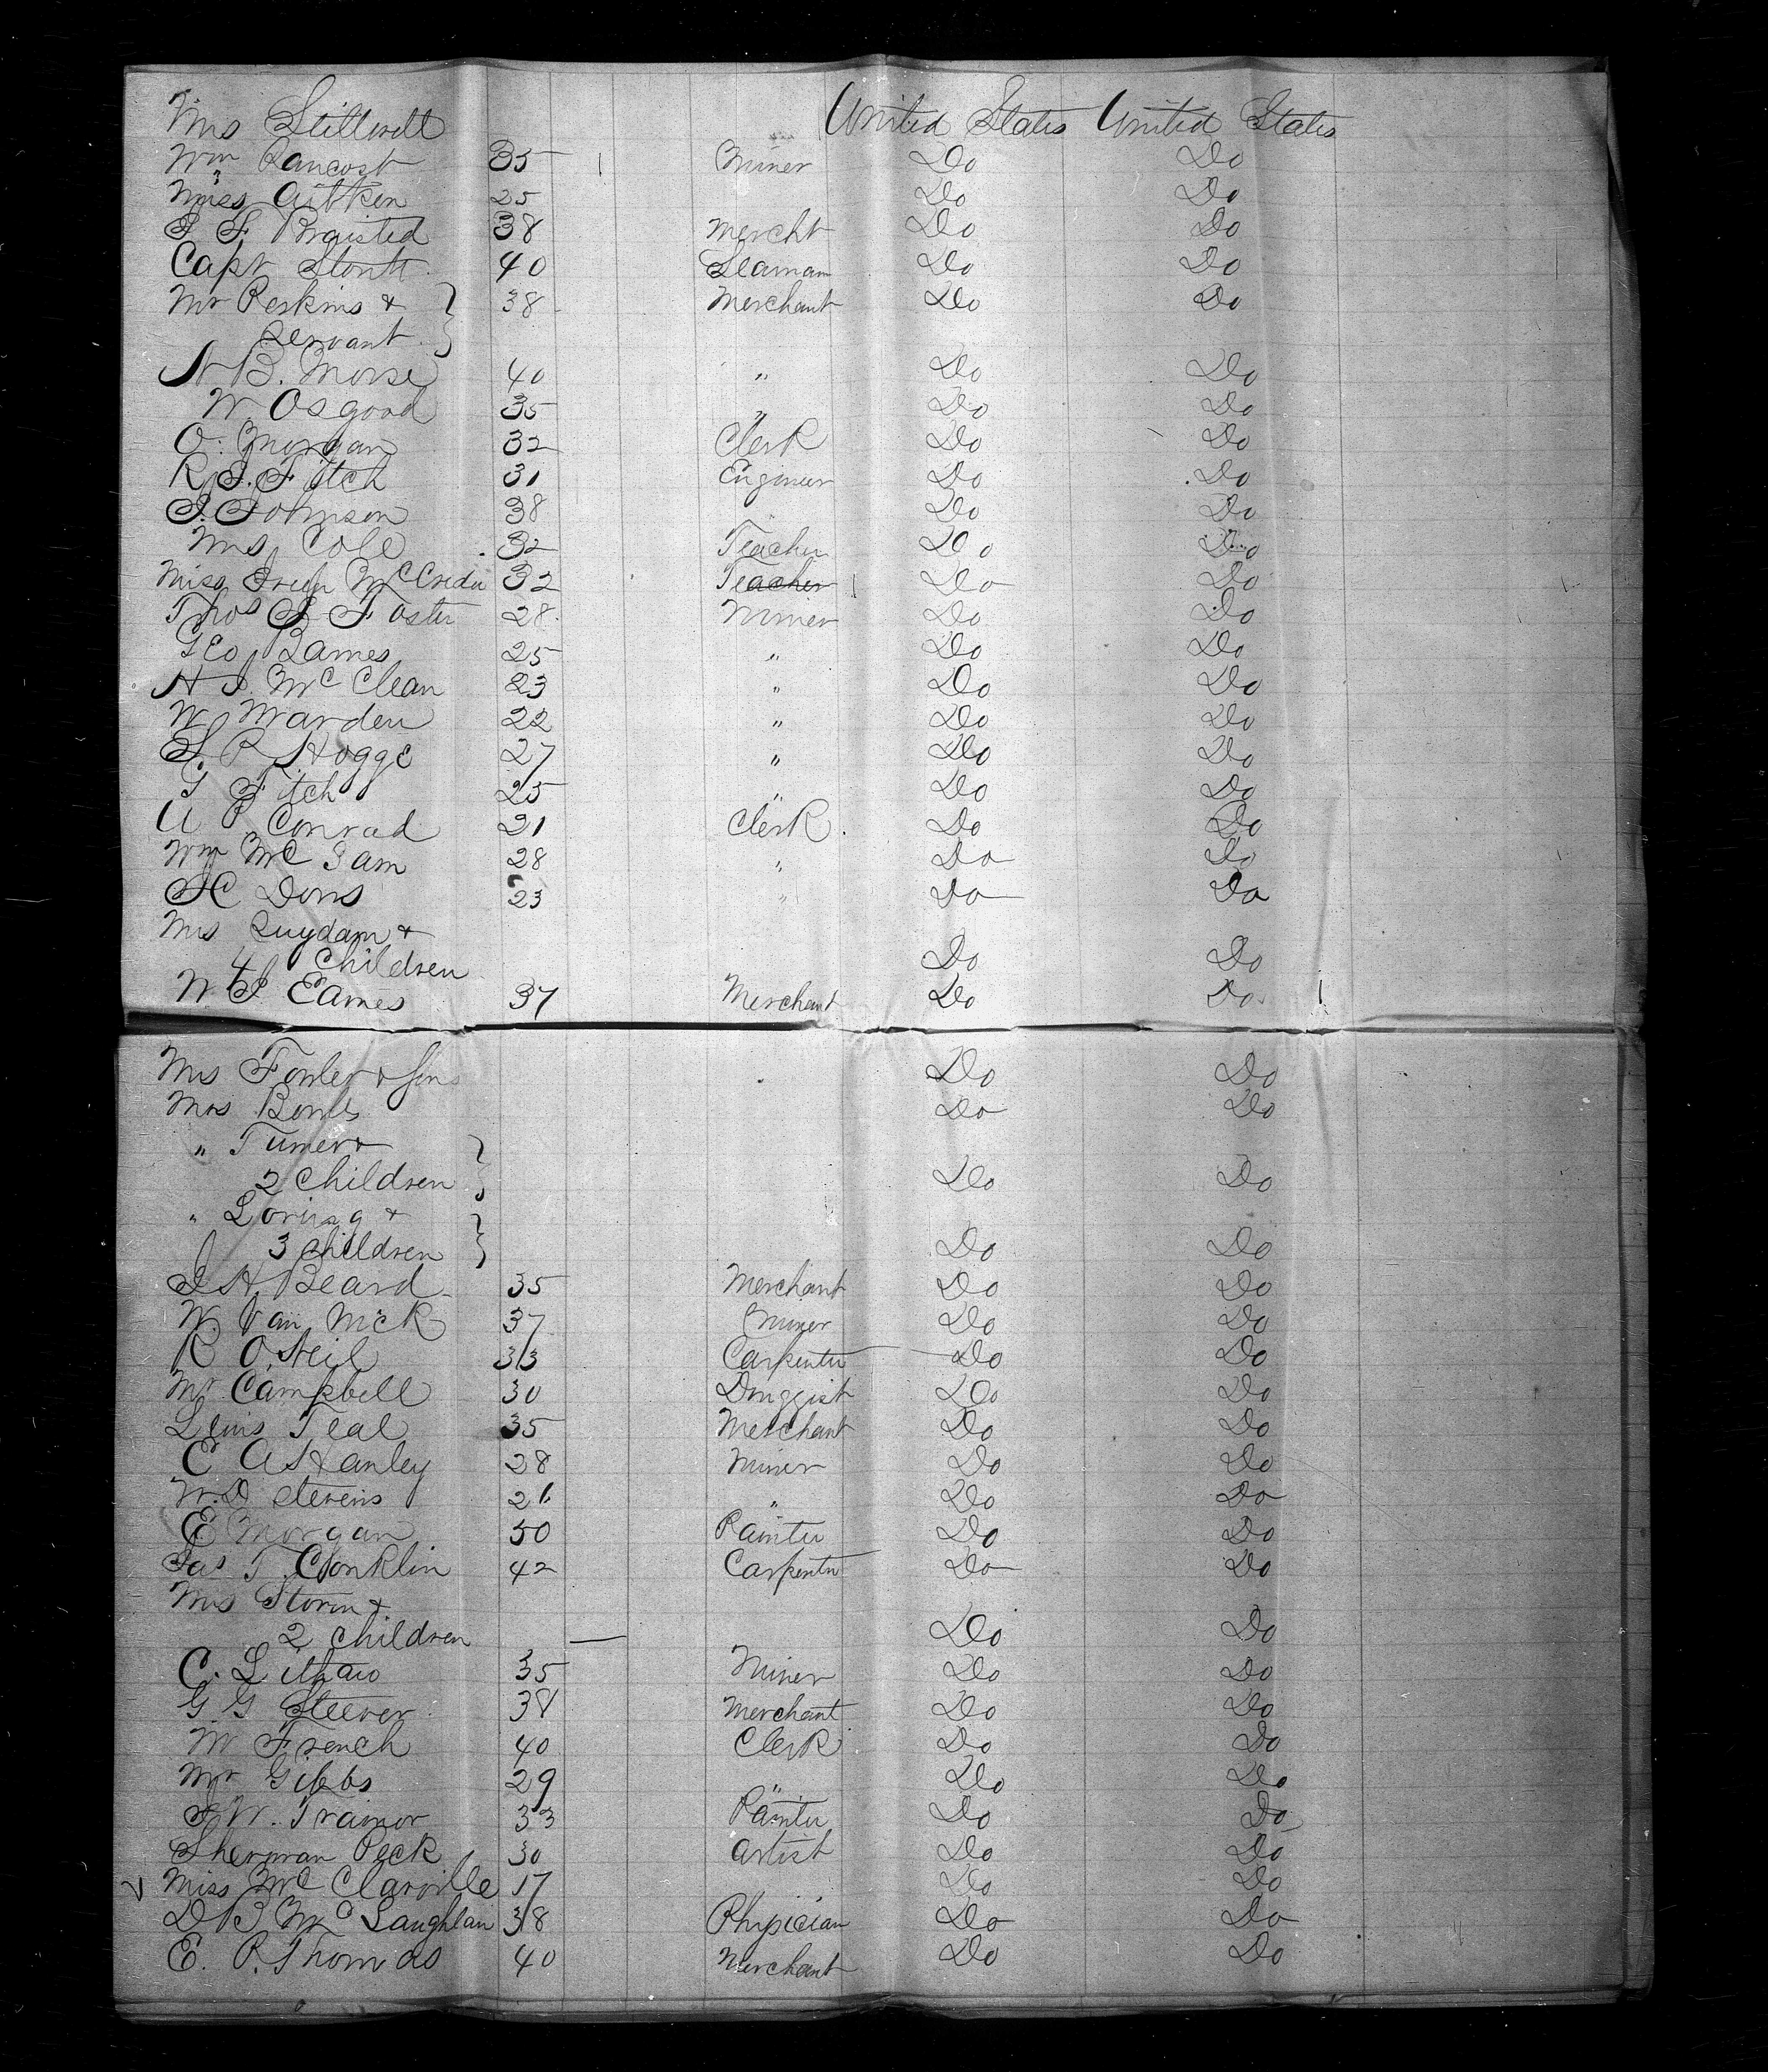 Mrs Stillwell United States United States
Wm Pancost 35 Miner Do Do
Miss Aitken 25 Do Do
J F Braisted 38 Mercht Do Do
Capt 40 Seaman Do Do
Mr Perkins & 38 Merchant Do Do
Servant
N B. Morse 40 " Do Do
W. Osgood 35 " Do Do
O. Morgan 32 Clerk Do Do
R. S. Fitch 31 Engineer Do Do
J. Johnson 38 Do Do
Mrs Cole 32 Teacher Do Do
Miss McCredie 32 Teacher Do Do
Thos S Foster 28 Miner Do Do
Geo Barnes 25 " Do Do
H J. Mc Clean 23 " Do Do
W Warden 22 " Do Do
S. P. Hogge 27 " Do Do
G Fitch 25 " Do Do
A P Conrad 21 Clerk Do Do
Wm Mc 28 " Do Do
23 " Do Do
Mrs Suydam &
4 Children Do Do
W J Eames 37 Merchant Do Do
Mrs Fowler & Son Do Do
Mrs Do Do
" Turner &
2 Children Do Do
" Loring &
3 Children Do Do
J H. Beard 35 Merchant Do Do
W. Van 37 Miner Do Do
R O. Neil 33 Carpenter Do Do
Mr Campbell 30 Druggist Do Do
Lewis Teal 35 Merchant Do Do
E A Stanley 28 Miner Do Do
W. D Stevens 26 " Do Do
E Morgan 50 Painter Do Do
Jas T. Conklin 42 Carpenter Do Do
Mrs Storm &
2 Children Do Do
C. L. 35 Miner Do Do
G G Steever 38 Merchant Do Do
W French 40 Clerk Do Do
Mr Gibbs 29 " Do Do
J W. Trainor 33 Painter Do Do
Sherman Peck 30 Artist Do Do
Miss Mc Clarville 17 Do Do
D B Mc Laughlain 38 Physician Do Do
E. P. Thomas 40 Merchant Do Do